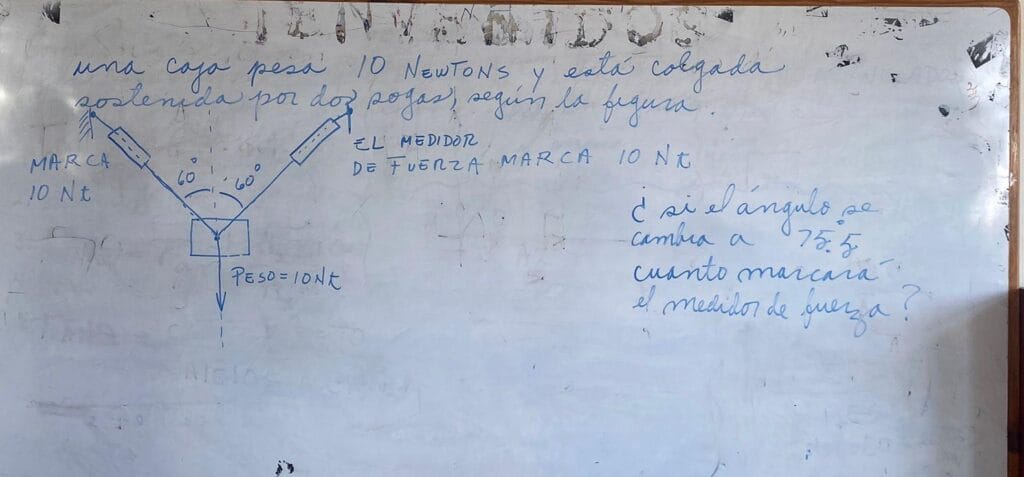 BIENVENIDOS
una caja pesa 10 NEWTONS y está colgada
sostenida por dos sogas, según la figura.
EL MEDIDOR
DE FUERZA MARCA 10 Nt
MARCA
10 Nt
60°
60°
PESO=10Nt
¿ si el ángulo se
cambia a 75.5°
cuanto marcará
el medidor de fuerza?